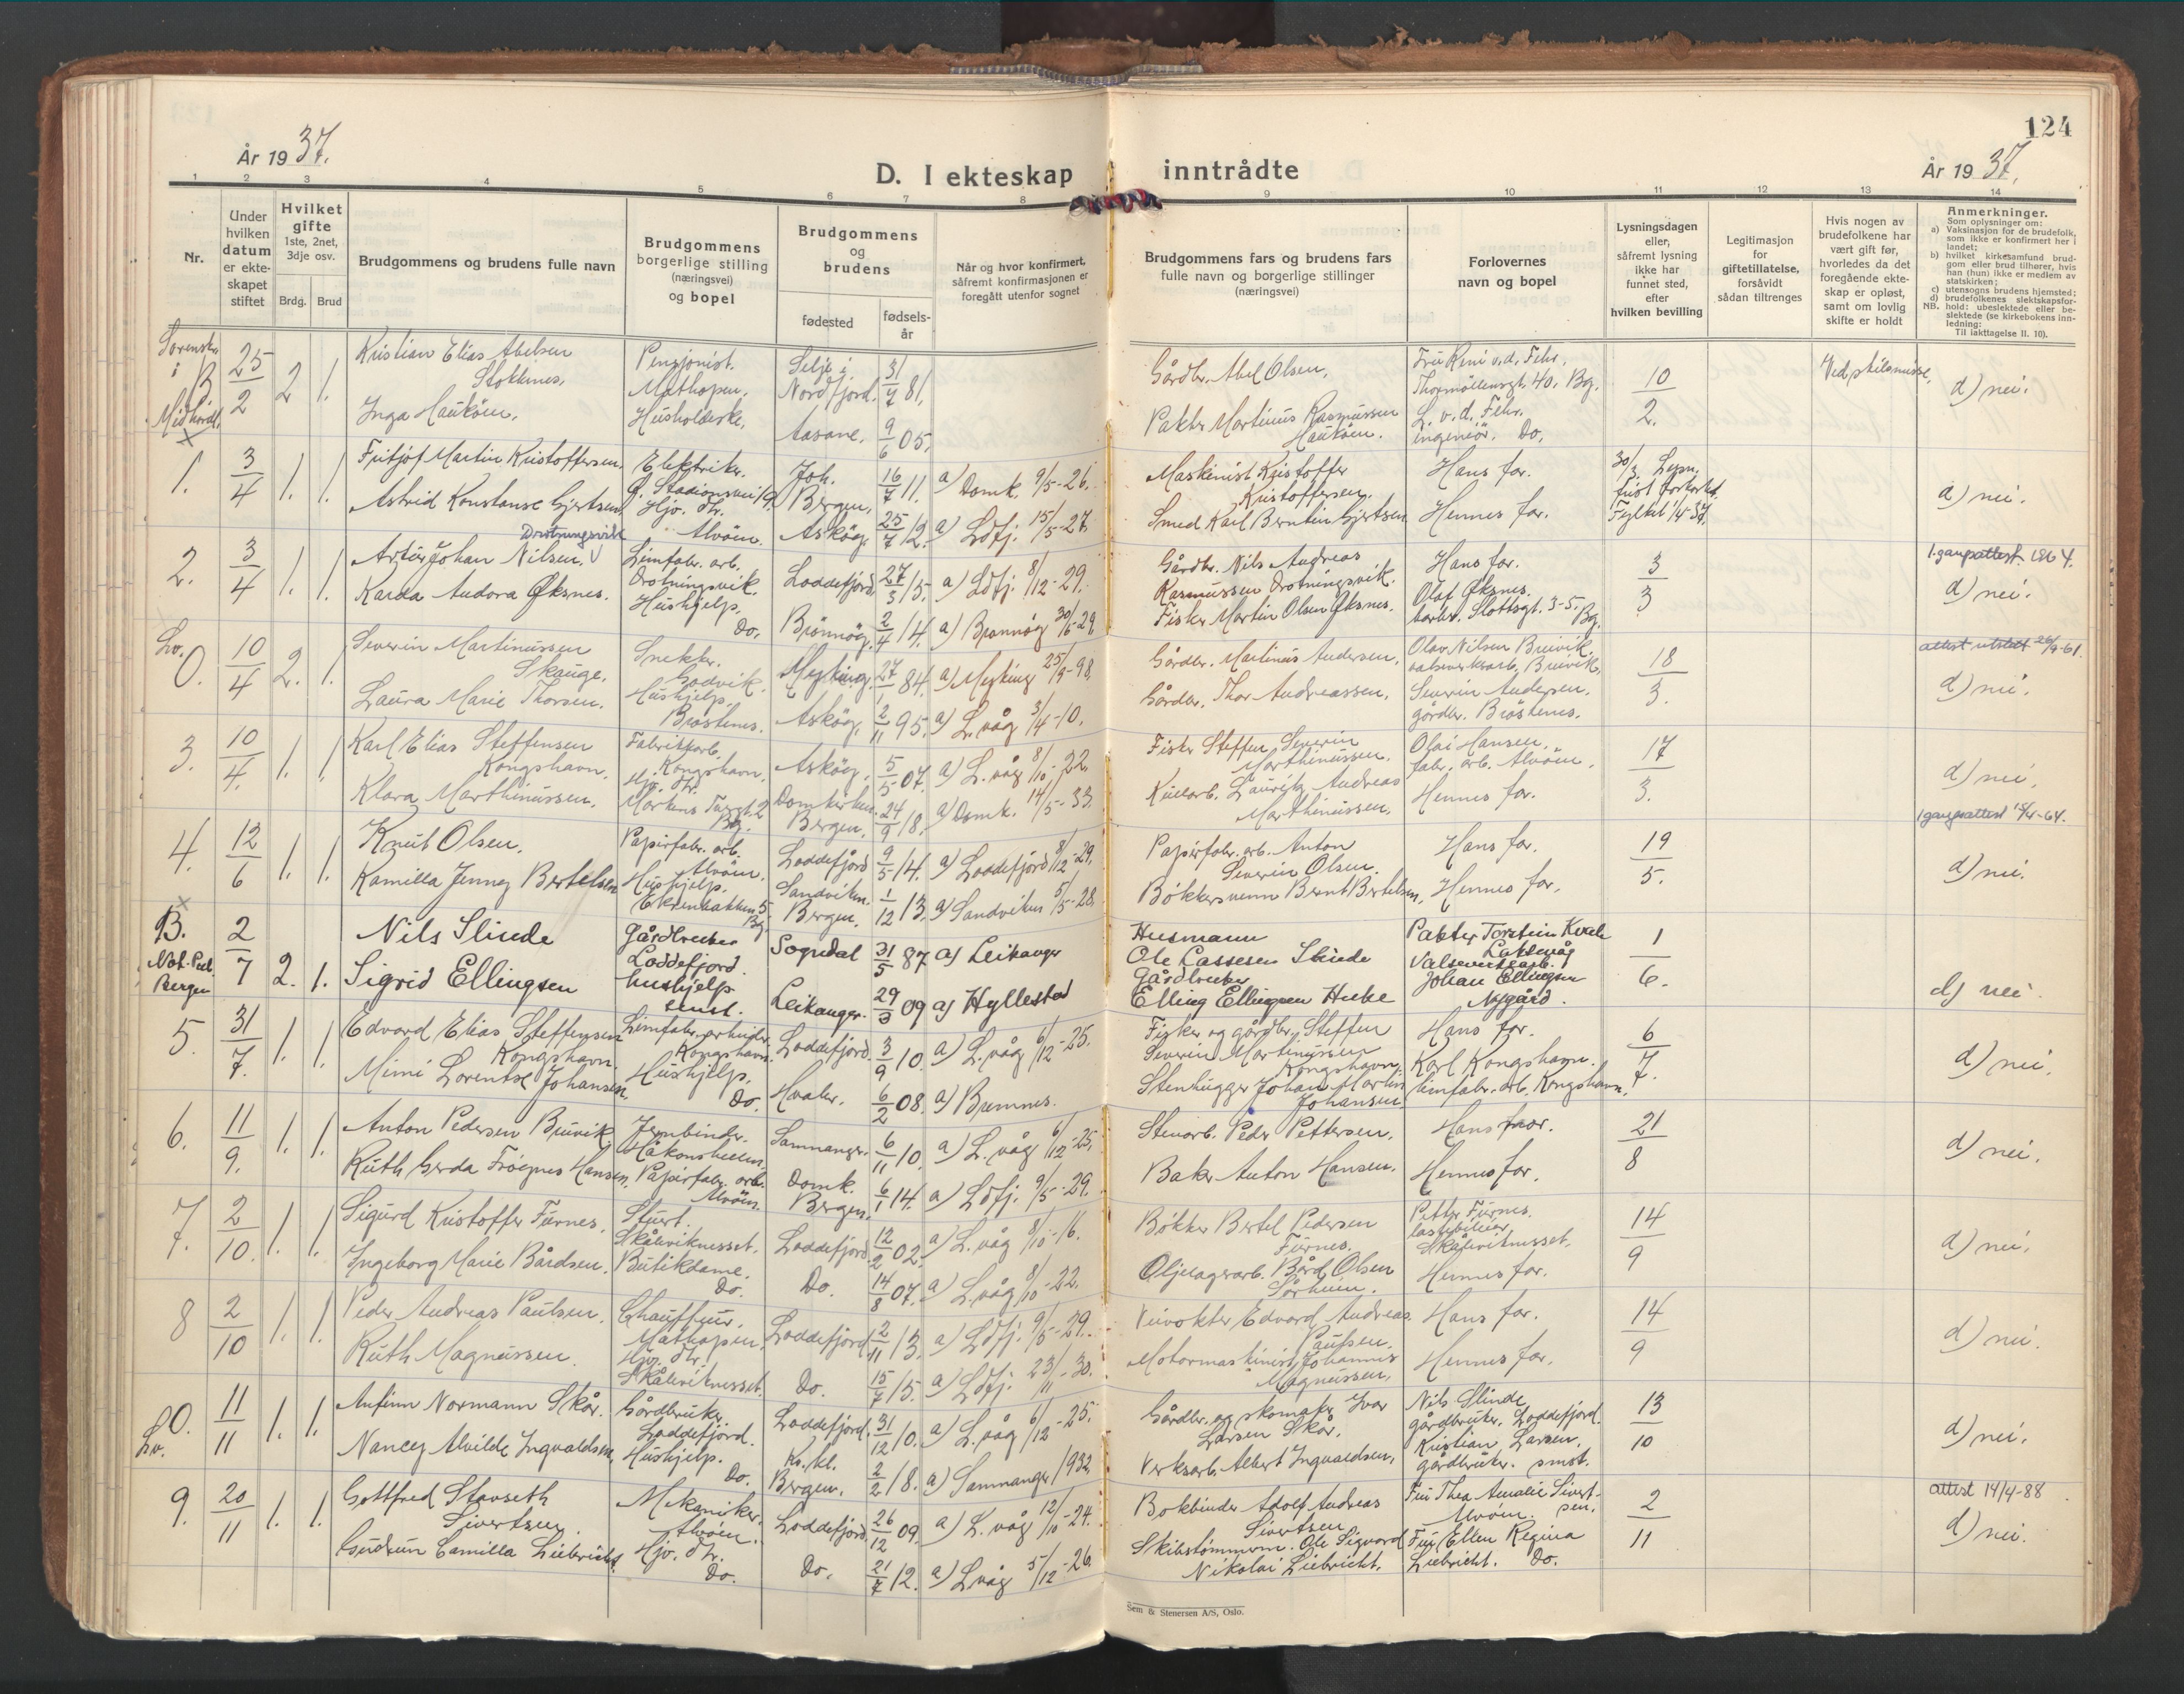 124
År 1937.
D. I ekteskap inntrådte
År 1937.
1 2 3 4 5 6 7 8 9 10 11 12 13 14
Nr.
Under hvilken datum er ekteskapet stiftet
Hvilket gifte 1ste, 2net, 3dje osv.
Brdg. Brud
Brudgommens og brudens fulle navn
Brudgommens borgerlige stilling (næringsvei) og bopel
Brudgommens og brudens
fødested
fødselsår
Når og hvor konfirmert, såfremt konfirmasjonen er foregått utenfor sognet
Brudgommens fars og brudens fars fulle navn og borgerlige stillinger (næringsvei)
Forlovernes navn og bopel
Lysningsdagen eller, såfremt lysning ikke har funnet sted, efter hvilken bevilling
Legitimasjon for giftetillatelse, forsåvidt sådan tiltrenges
Hvis nogen av brudefolkene har vært gift før, hvorledes da det foregående ekteskap er opløst, samt om lovlig skifte er holdt
Anmerkninger.
Som oplysninger om:
a) Vaksinasjon for de brudefolk, som ikke er konfirmert her i landet;
b) hvilket kirkesamfund brudgom eller brud tilhører, hvis han (hun) ikke er medlem av statskirken;
c) utensogns brudens hjemsted;
d) brudefolkenes slektskapsforhold: ubeslektede eller beslektede (se kirkebokens innledning:
NB.
Til iakttagelse II. 10).
Sorenskr. i B Midhordl. 25/2 2 1.
Kristian Elias Abelsen Stokknes, Pensjonist. Mathopen. Selje i Nordfjord. 31/7 81. Gårdbr. Abel Olsen, Fru Reni v.d. Fehr, Thormøllensgt. 40, Bg. 10/2. Ved skilsmisse, d) nei.
Inga Haukåen. Husholderske. Aasane. 9/6 05. Pakter Martinus Rasmussen Haukåen. L. v.d. Fehr. ingeniør. Do.
1. 3/4 1. 1. Fritjof Martin Kristoffersen. Elektriker. G. Stadionsvei 19. Joh. Bergen, 16/7 11. a) Domk. 9/5-26. Maskinist Kristoffer Kristoffersen. Hans far. d) nei.
Astrid Konstanse Gjertsen. Hjv. dtr. Alvøen. Askøy. 25/7 12. a) Ldfj. 15/5-27. Smed Karl Berntin Gjertsen Hennes far.
Drotningsvik
2. 3/4 1. 1. Artur Johan Nilsen. Limfabr. arb. Drotningsvik. Loddefjord 27/3 15. a) Ldfj. 8/12-29. Gårdbr. Nils Andreas Rasmussen Drotningsvik. Hans far. 3/3 1.gangsattest 1964. d) nei.
Karda Andora Øksnes. Hushjelp. Do. Brønnøy. 2/4 14. a) Brønnøy 30/6-29. Fisker Martin Olsen Øksnes. Olaf Øksnes. barber. Slottsgt. 3-5. Bg.
Lv. 0. 10/4 2. 1. Severin Martinussen Skauge. Snekker. Godvik. Meyking. 27/1 84. a) Meyking 25/9-98. Gårdbr. Martinus Andersen, Olav Nilsen Bruvik, valseverksarb. Bruvik. 18/3. attest utstedt 26/9-61. d) nei.
Laura Marie Thorsen. Hushjelp. Brøstenes. Askøy. 2/11 95. a) L.våg 3/4-10. Gårdbr. Thor Andreassen. Severin Andersen. gårdbr. Brøstenes.
3. 10/4. 1. 1. Karl Elias Steffensen Kongshavn. Fabrikkarb. Kongshavn. Askøy. 5/5 07. a) L.våg 8/10-22. Fisker Steffen Severin Marthinussen. Olai Hansen. fabr. arb. Alvøen. 17/3. d) nei.
Klara Marthinussen. Hjv. dtr. Domkirken Bergen. 24/9 18. a) Domk. 14/5-33. Kullarb. Lauritz Andreas Marthinussen. Hennes far.
4. 12/6 1. 1. Knut Olsen. Papirfabr. arb. Alvøen. Loddefjord 9/5 14. a) Loddefjord 8/12-29. Papirfabr. arb. Anton Severin Olsen. Hans far. 19/5. 1 gangsattest 15/4-64. d) nei.
Kamilla Jenny Bertelsen Hushjelp. Ekrenbakken 5 Bg. Sandviken. Bergen. 1/12 13. a) Sandviken 5/5-28. Bøkkersvenn Bernt Bertelsen, Hennes far.
B. Not. Publ. Bergen 2/7 2. 1. Nils Slinde Gårdbruker Loddefjord. Sogndal 31/5 87 a) Leikanger Husmann Ole Lassesen Slinde Pakter Torstein Kvale Laksevåg 1/6. d) nei.
Sigrid Ellingsen hushjelp smst. Leikanger. 29/3 09 a) Hyllestad Gårdbruker Elling Ellingsen Hube Valseverksarb. Johan Ellingsen Nygård.
5. 31/7. 1. 1. Edvard Elias Steffensen Kongshavn. Limfabr. arbeider. Kongshavn. Loddefjord. 3/9 10. a) L.våg 6/12-25. Fisker og gårdbr. Steffen Severin Martinussen Kongshavn. Hans far. 6/7. d) nei.
Mimi Lorentse Johansen. Hushjelp. Do. Hvaler. 6/2 08. a) Bremnes. Stenhugger Johan Martin Johansen Karl Kongshavn. limfabr. arb. Kongshavn.
6. 11/9. 1. 1. Anton Pedersen Bruvik. Jernbinder. Håkonshellen. Samnanger. 6/11 10. a) L.våg 6/12-25. Stenarb. Peder Pettersen. Hans faar. 21/8 d) nei.
Ruth Gerda Frøegnes Hansen. Papirfabr. arb. Alvøen. Domk. Bergen. 6/1 14. a) Ldfj. 9/5-29. Baker Anton Hansen. Hennes far.
7. 2/10. 1. 1. Sigurd Kristoffer Furnes. Stuert. Skåleviknesset. Loddefjord 12/2 02. a) L.våg 8/10-16. Bøkker Bertel Pedersen Furnes. Petter Furnes. lastebileier, Skåleviknesset. 14/9 d) nei.
Ingeborg Marie Bårdsen. Butikdame. Do. Do. 14/8 07. a) L.våg 8/10-22. Oljelagerarb. Bård Olsen Sørheim. Hennes far.
8 2/10 1. 1. Peder Andreas Paulsen. Chauffeur. Mathopen. Loddefjord 2/11 13. a) Ldfj. 9/5-29. Veivokter Edvard Andreas Paulsen. Hans far. 14/9 d) nei.
Ruth Magnussen. Hjv. dtr. Skåleviknesset. Do. 15/7 15. a) Ldfj. 23/11-30. Motormaskinist Johannes Magnussen. Hennes far.
0. Lv. 11/11 1. 1. Anfinn Normann Skår. Gårdbruker. Loddefjord. Loddefjord. 31/12 10. a) L.våg 6/12-25. Gårdbr. og skomaker Ivar Larsen Skår. Nils Slinde gårdbruker. Loddefjord. 13/10 d) nei.
Nancy Alvilde Ingvaldsen, Hushjelp. Do. Kv. kl. Bergen. 2/2 18. a) Samnanger 1932. Verksarb. Albert Ingvaldsen, Kristian Larsen, gårdbruker. smst.
9. 20/11 1. 1. Gottfred Stavseth Sivertsen. Mekaniker. Alvøen. Loddefjord 26/12 09. a) L.våg 12/10-24. Bokbinder Adolf Andreas Sivertsen Fru Thea Amalie Sivertsen. Alvøen. 2/11 attest 14/4-88 d) nei.
Gudrun Camilla Liebricht. Hjv. dtr. Do. Do. 21/7 12. a) L.våg 5/12-26. Skibstømmerm. Ole Sigvard Nikolai Liebricht. Fru Ellen Regina Liebricht. Do.
Sem & Stenersen A/S, Oslo.